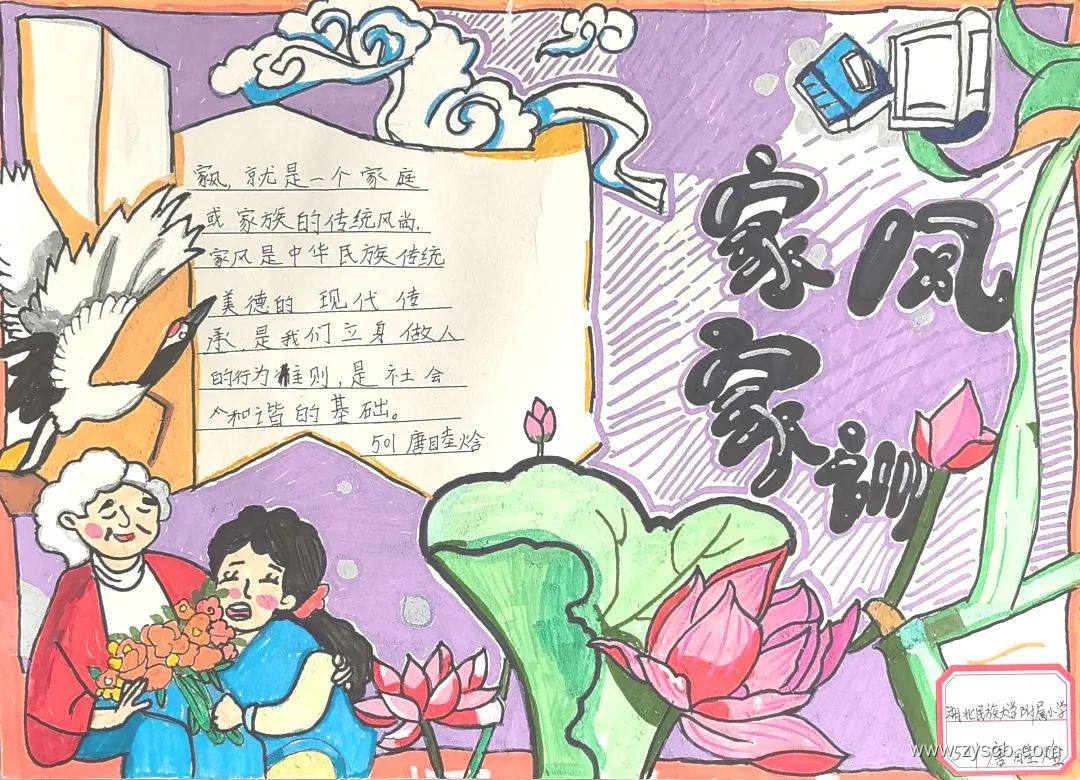 家风
家训
家风,就是一个家庭
或家族的传统风尚,
家风是中华民族传统
美德的现代传
承,是我们立身做人
的行为准则,是社会
和谐的基础。
501 唐睦焓
湖北民族大学附属小学
501 唐睦
www.zyscb.com